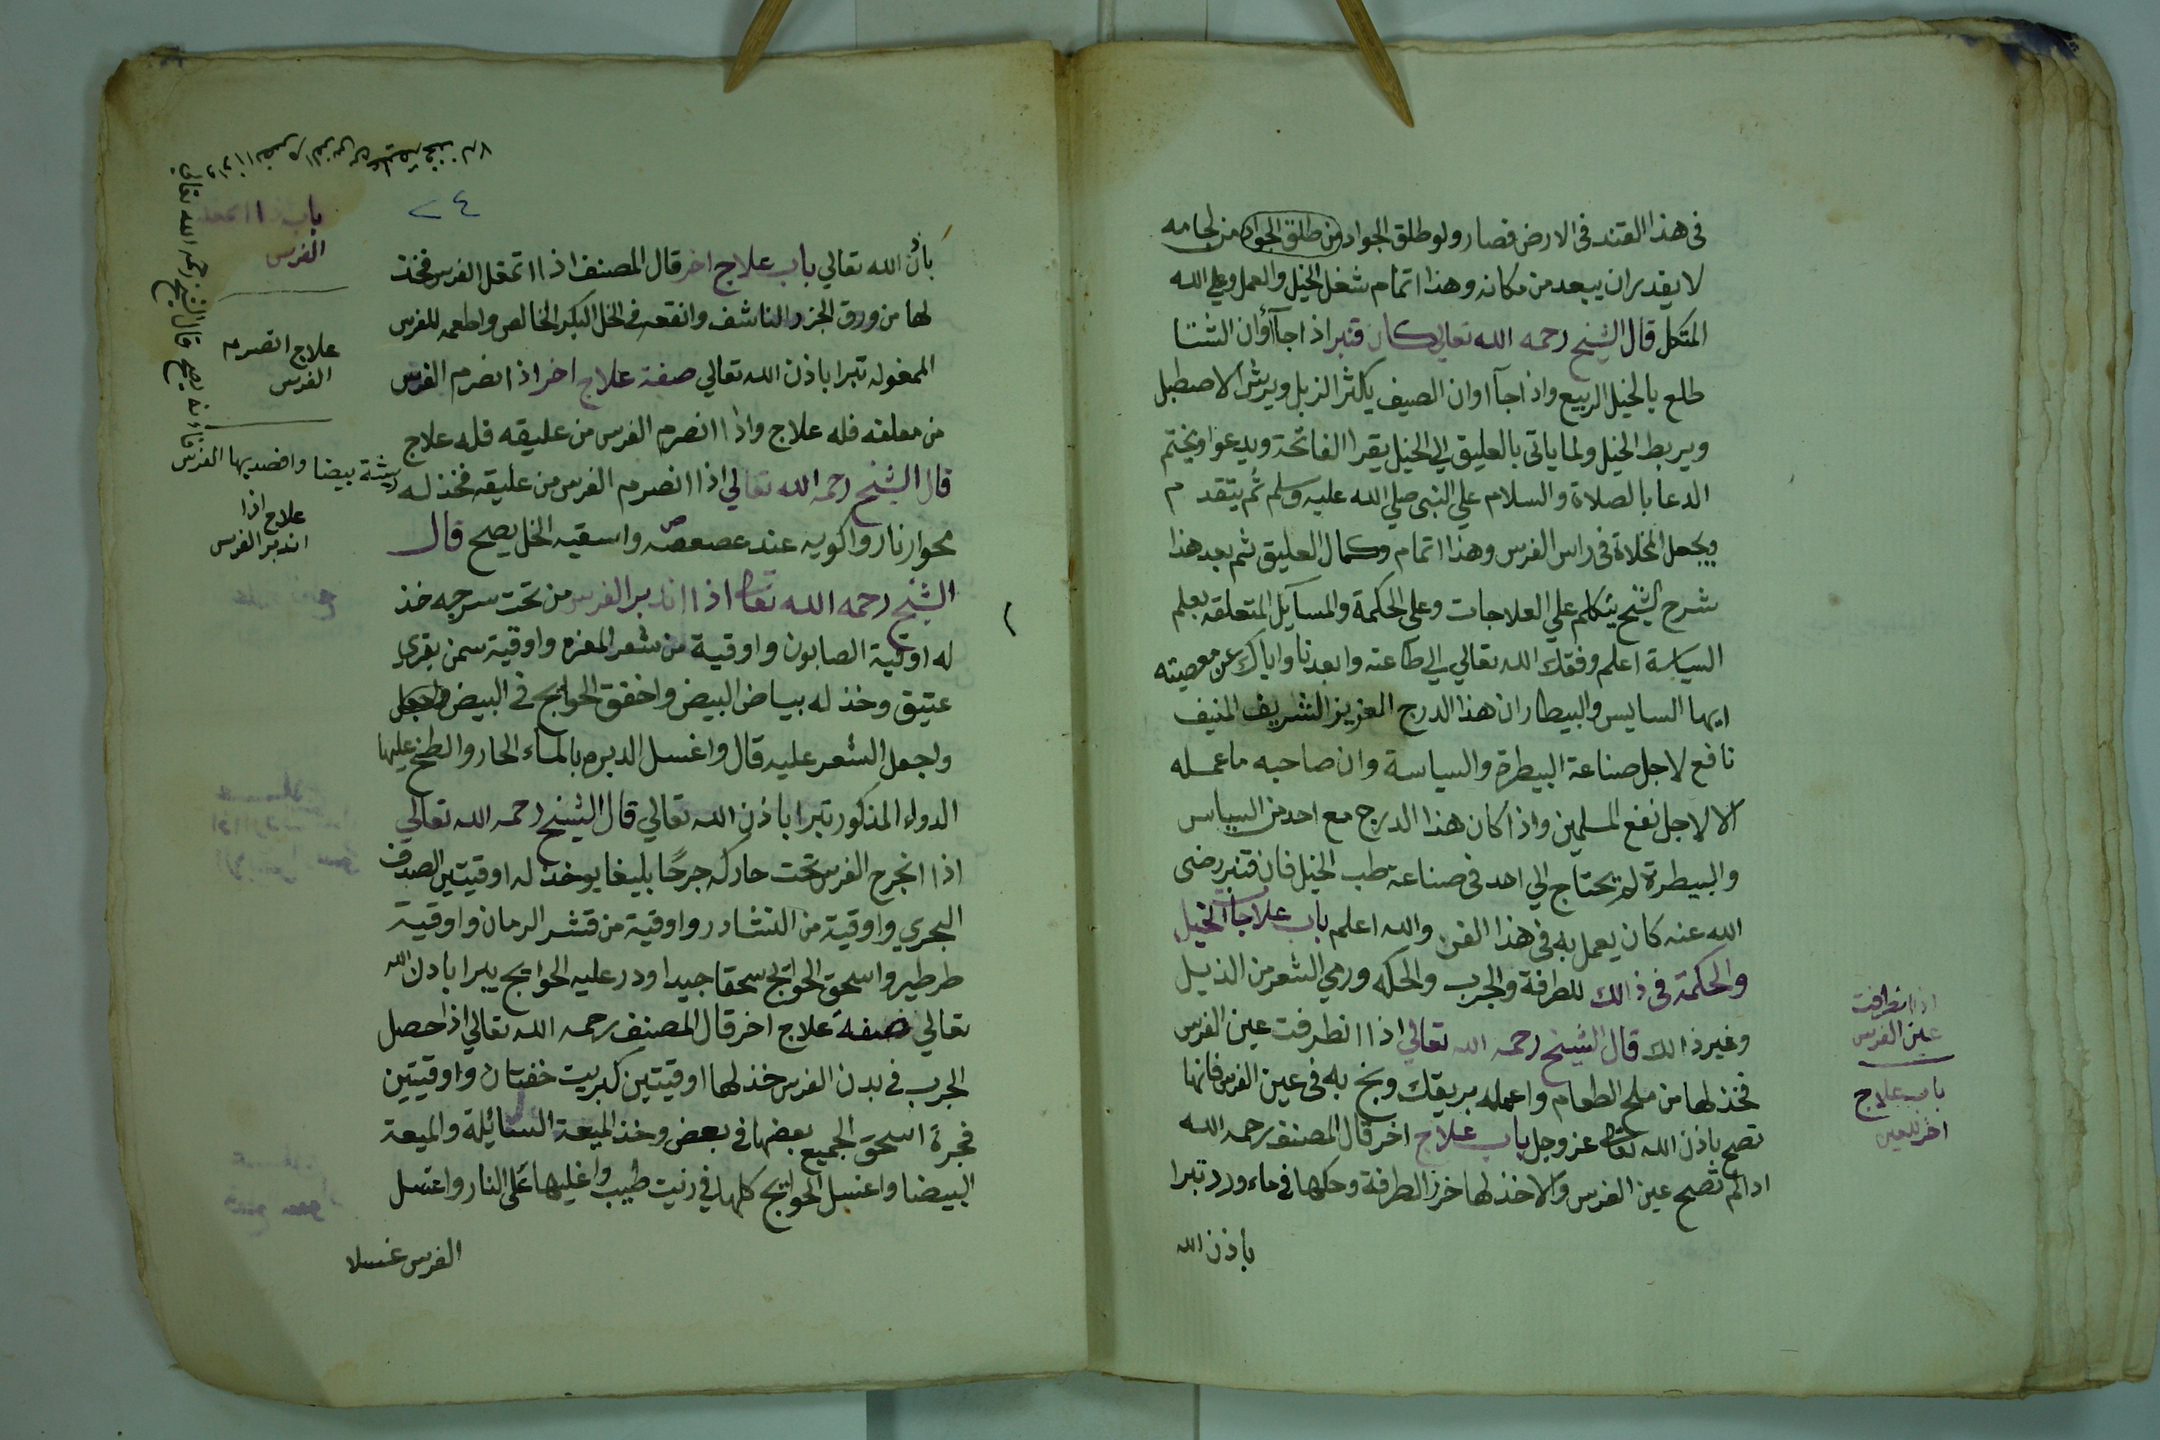 في هذا القتد في الارض فصار ولو طلق الجواد من طلق الجواد من لجامه
لا يقدر ان يبعد من مكانه وهذا اتمام شغل الخيل والعمل وعلي الله
المتكل قال الشيخ رحمه الله تعالي كان قنبر اذا جآ أوان الشتا
طلع بالخيل الربيع واذا جآ اوان الصيف يكثر الزبل ويرش الاصطبل
ويربط الخيل ولما ياتي بالعليق الي الخيل يقرا الفاتحة ويدعوا ويختم
الدعا بالصلاة والسلام علي النبي صلي الله عليه وسلم ثم يتقدم
ويجعل المخلاة في راس الفرس وهذا اتمام وكمال العليق ثم بعد هذا
شرح الشيخ يتكلم علي العلاجات وعلي الحكمة والمسآيل المتعلقه بعلم
السياسة اعلم وفقك الله تعالي الي طاعته وابعدنا واياك عن معصيته
ايها السايس والبيطار ان هذا الدرج العزيز الشريف المنيف
نافع لاجل صناعة البيطرة والسياسة وان صاحبه ما عمله
الا لاجل نفع المسلمين واذا كان هذا الدرج مع احد من السياس
والبيطرة لم يحتاج الي احد في صناعة طب الخيل فان قنبر رضى
الله عنه كان يعمل به في هذا الفن والله اعلم باب علاجات الخيل
والحكمة في ذالك للطرفة والجرب والحكه ورمي الشعر من الذيل
وغير ذالك قال الشيخ رحمه الله تعالي اذا انطرفت عين الفرس
فخذ لها من ملح الطعام واعمله بريقك وبخ به في عين الفرس فانها
تصح باذن الله تعالى عز وجل باب علاج اخر قال المصنف رحمه الله
اذا لم تصح عين الفرس والا خذ لها خرز الطرفة وحكها في ماء ورد تبرا
باذن الله
اذا انطرفت
عين الفرس
باب علاج
اخر للعين
٢٤
بأن الله تعالي باب علاج اخر قال المصنف اذا اتمغل الفرس فخذ
لها من ورق الجزر الناشف وانقعه في الخل البكر الخالص واطعمه للفرس
الممغوله تبرا باذن الله تعالي صفة علاج اخر اذا انصرم الفرس
من معلفه فله علاج واذا انصرم الفرس من عليقه فله علاج
قال الشيخ رحمه الله تعالي اذا انصرم الفرس من عليقه فخذ له
محوار نار واكويه عند عصعصه واسقيه الخل يصح قال
الشيخ رحمه الله تعالى اذا اندبر الفرس من تحت سرجه خذ
له اوقية الصابون واوقية من شعر المعزه واوقية سمن بقري
عتيق وخذ له بياض البيض واخفق الحوايج في البيض واجعل
واجعل الشعر عليه قال واغسل الدبره بالماء الحار والطخ عليها
الدواء المذكور تبرا باذن الله تعالي قال الشيخ رحمه الله تعالي
اذا انجرح الفرس تحت حاركه جرحا بليغا يوخذ له اوقيتين الصدف
البحري واوقية من النشادر واوقية من قشر الرمان واوقية
طرطير واسحق الحوايج سحقا جيدا ودر عليه الحوايج يبرا باذن الله
تعالي صفة علاج اخر قال المصنف رحمه الله تعالي اذا حصل
الجرب في بدن الفرس خذ لها اوقيتين كبريت خفتان واوقيتين
فجرة اسحق الجميع بعضها في بعض وخذ الميعة السائيلة والميعة
البيضا واغسل الحوايج كلها في زيت طيب واغليها على النار واغسل
الفرس غسلا
باب
الفرس
علاج انصرم
الفرس
ريشة بيضا وافصد بها الفرس
فانه يصح قال الشيخ رحمه الله تعالي
واذا انصرم الفرس من عليقه فخذ له
علاج اذا
اندبر الفرس